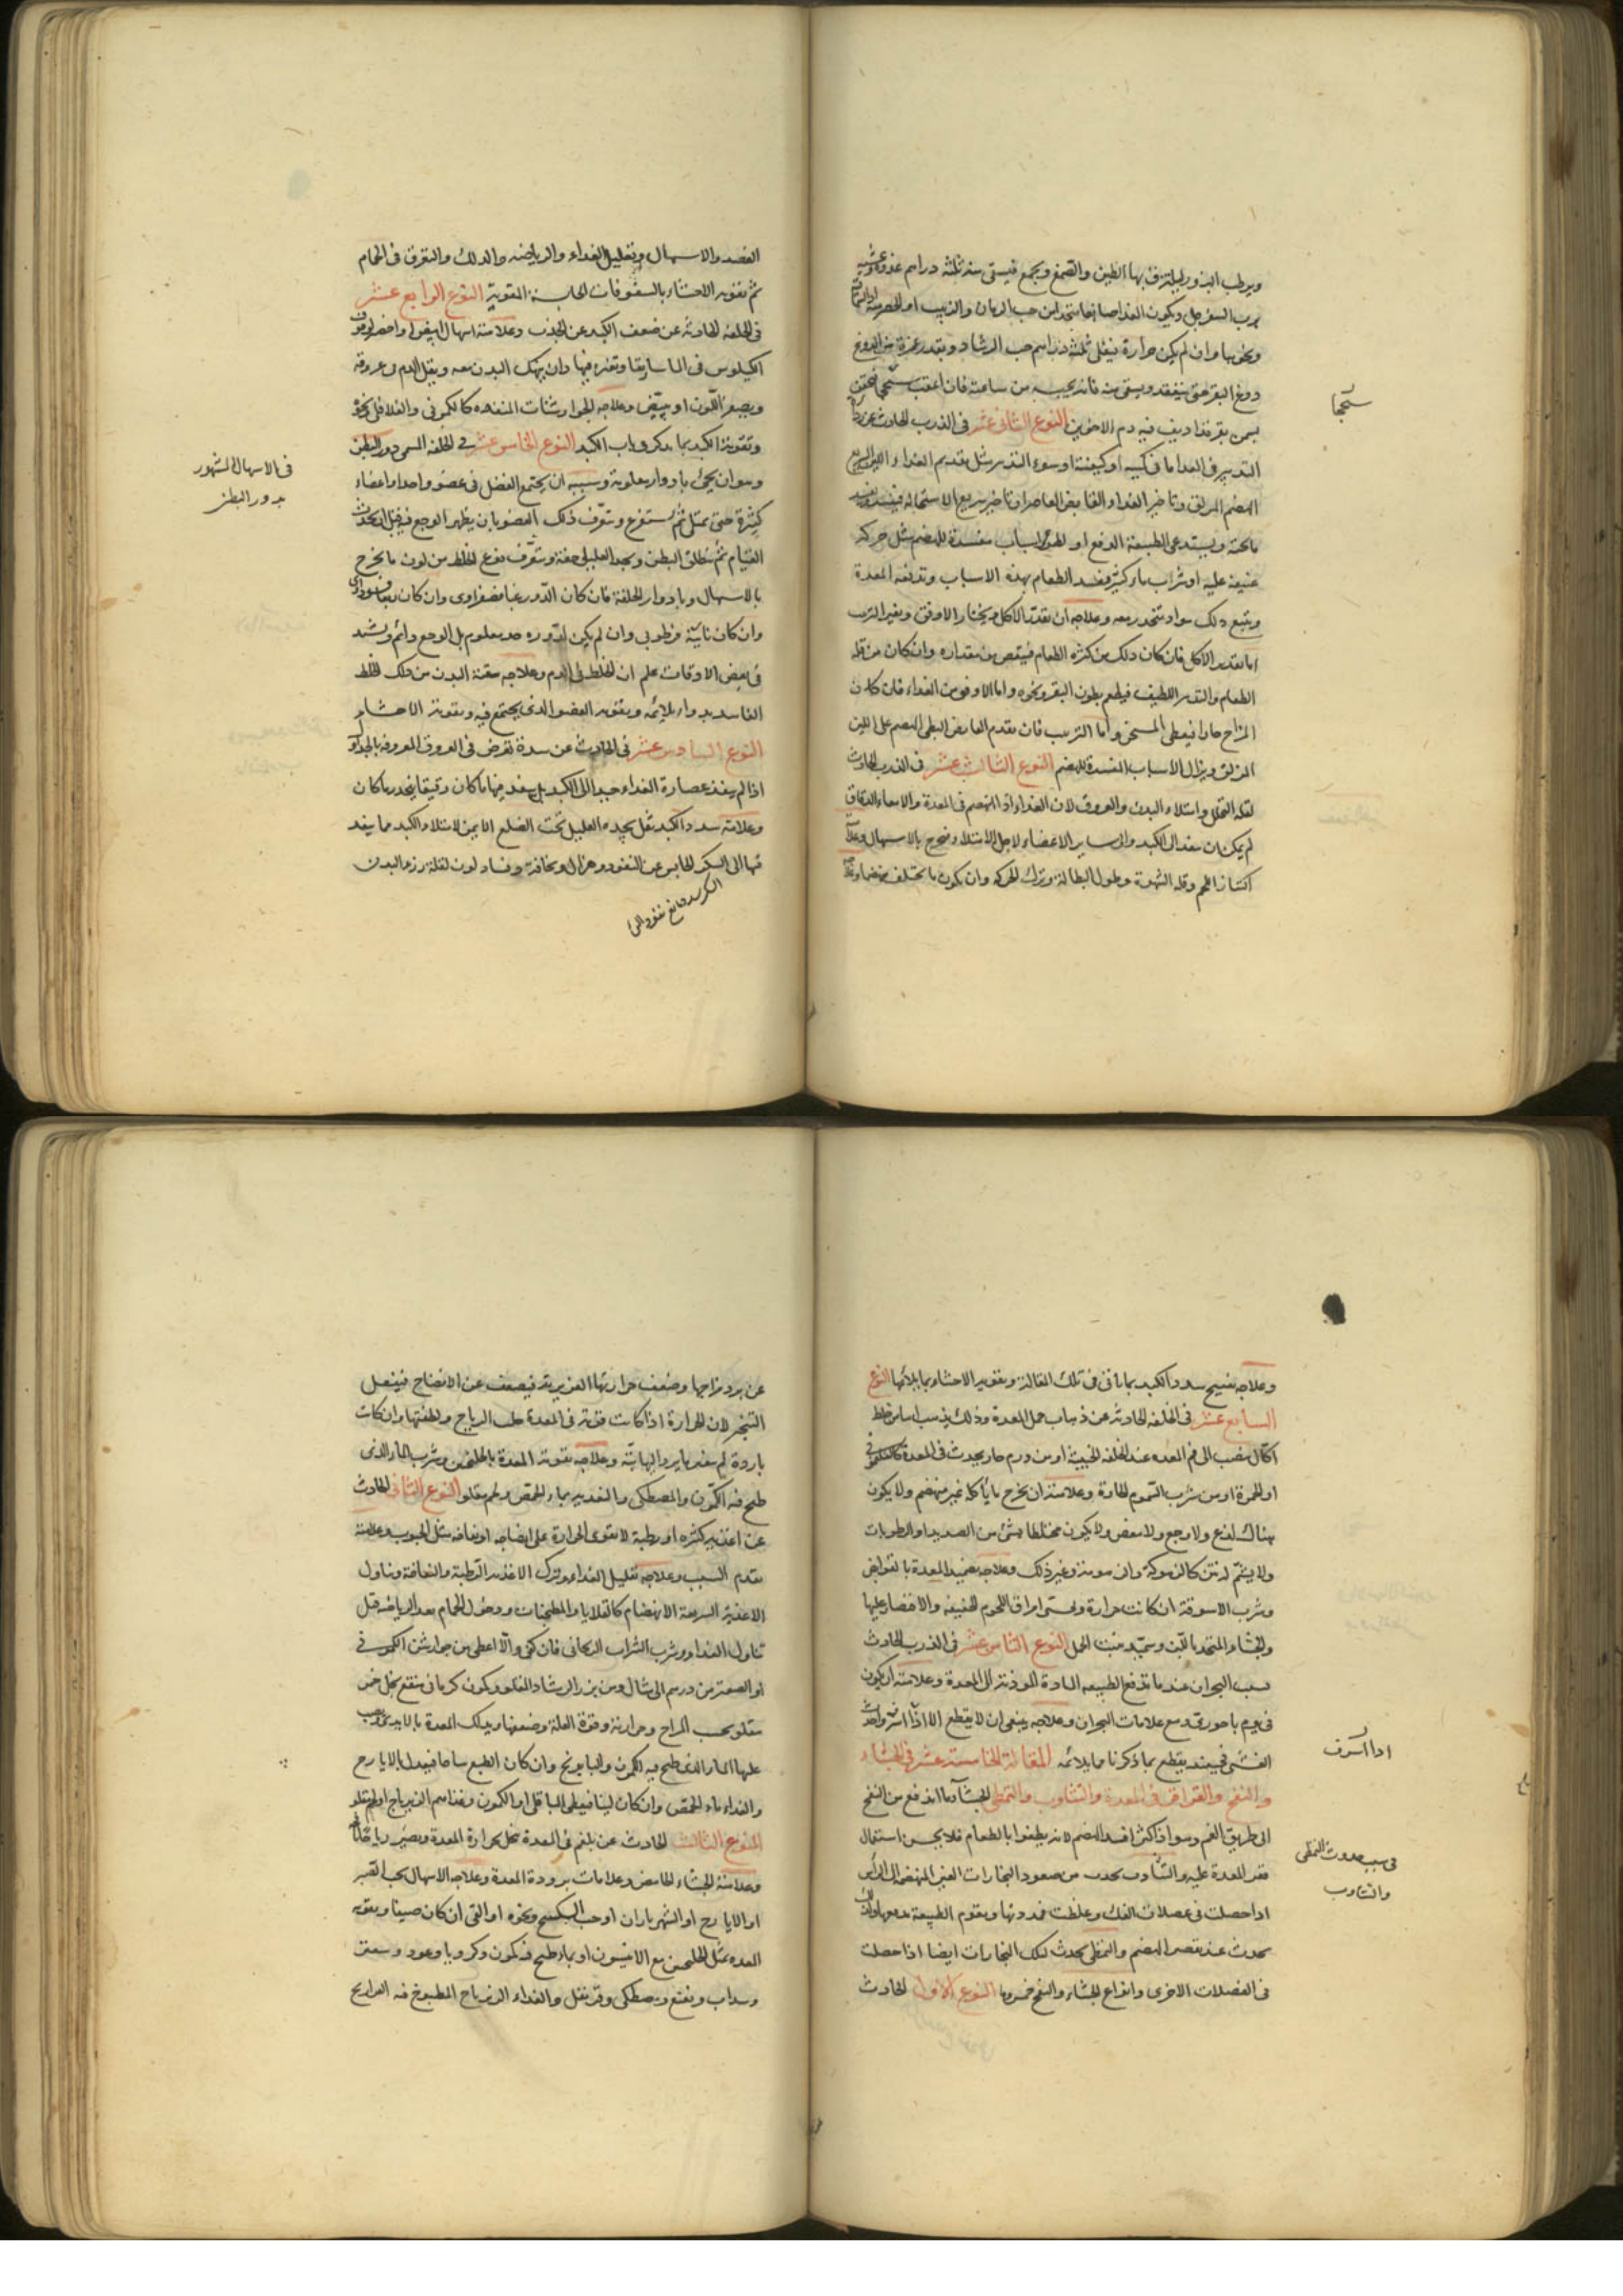 ويرطب البزور ليلتزق بها الطين والصمغ ويجمع فيستى منه ثلثة دراهم غدوة وعشية
برب السفرجل ويكون الغذا متخذا من حب الرمان والزبيب او الحصرمية
وان لم يكن حرارة فيغلى ثلثة دراهم حب الرشاد
دوغ البقر حتى ينعقد ويسقى منه فانه يحبسه من ساعته فان اعقب سحجا فيحقن
سحجا
بسمن بقر قد اديف فيه دم الاخوين النوع الثانى عشر فى الذرب الحادث عن
التدبير فى الغدا اما فى كميته او كيفيته او سوء التدبير مثل تقديم الغداء
الهضم المزلق وتاخير الغداء القابض العاصر او تاخير سريع الاستحالة فيفسد ويفسد
ما تحته ويستدعى الطبيعة الدفع او لطرؤ اسباب مفسدة للهضم مثل حركة
عنيفة عليه او شراب ماء كثير فيفسد الطعام بهذه الاسباب وتدفعه المعدة
ويتبع ذلك مواد تنحدر معه وعلاجه ان تقدير الاكل ويختار الاوفق ويغير الترتيب
اما تقدير الاكل فان كان ذلك من كثرة الطعام فينقص من مقداره وان كان من قلة
الطعام والتدبير اللطيف فيطعم بطون البقر ونحوه واما الاوفق من الغداء فان كان
المزاج حارا فيعطى المسخن واما الترتيب فان تقدم القابض البطى الهضم على اللين
المزلق ويزال الاسباب المفسدة للهضم النوع الثالث عشر فى الذرب الحادث
لقلة التحلل وامتلاء البدن والعروق لان الغداء اذا انهضم فى المعدة والامعاء الدقاق
لم يمكن ان ينفد الى الكبد والى ساير الاعضاء لاجل الامتلاء فيخرج بالاسهال وعلامته
اكتناز اللحم وقلة الشهوة وطول البطالة وترك الحركة وان يكون ما يختلف منهضما
الفصد والاسهال وتقليل الغداء والرياضه والدلك والتعرق فى الحمام
ثم تقوية الاحشاء بالسفوفات الحابسة المقوية النوع الرابع عشر
فى الخلفة الحادثة عن ضعف الكبد عن الجذب وعلامته اسهال ابيض او اخضر لوقوف
الكيلوس فى الماساريقا وتغيره فيها وان ينهك البدن معه ويقل الدم فى عروقه
ويصفر اللون او يبيض وعلاجه الجوارشات المنفذه كالكمونى والفلافلى ونحوه
وتقوية الكبد بما يذكر فى باب الكبد النوع الخامس عشر فى الخلفة المسمى دور البطن
فى الاسهال المشهور
بدور البطن
وهو ان يجئ بادوار معلومة وسببه ان يجتمع الفضل فى عضو واحد او اعضاء
كثيرة حتى تمتلى ثم يستفرغ ويتعرف ذلك العضو بان يظهر الوجع فيه قبل ان يحدث
القيام ثم ينطلق البطن ويجد العليل خفة ويتعرف نوع الخلط من لون ما يخرج
بالاسهال وبادوار الخلفة فان كان الدور غبا فصفراوى وان كان ربعا فسوداوى
وان كان نايبة فرطوبى وان لم يكن لدوره حد معلوم بل الوجع دائم ويشتد
فى بعض الاوقات علم ان الخلط فى الدم وعلاجه تنقية البدن من ذلك الخلط
الفاسد بدواء يلائمه وتقوية العضو الذى يجتمع فيه وتقوية الاحشاء
النوع السادس عشر فى الحادث عن سدة تعرض فى العروق المعروفة بالجداول
اذا لم ينفذ عصارة الغداء جيدا الى الكبد بل ينفد منها ما كان رقيقا ينحدر ما كان
وعلامته سدد الكبد ثقل يجده العليل تحت الضلع الايمن لامتلاء الكبد مما ينفد
فيها الى السكر الحابس عن النفوذ وهزال ونحافة وفساد لون لقلة رزء البدن
السكر سد مانع نفوذ الماء
وعلاجه تفتيح سدد الكبد بما ياتى فى تلك المقالة وتقوية الاحشاء بما يلائمها النوع
السابع عشر فى الخلفة الحادثة عن ذهاب خمل المعدة وذلك يذهب اما من خلط
اكال ينصب الى فم المعده عند الخلفة الخبيثة او من ورم حار يحدث فى المعدة كالفلغمونى
او الحمرة او من شرب السموم الحادة وعلامته ان يخرج ما ياكله غير منهضم ولا يكون
هناك لذع ولا وجع ولا مغص ولا يكون مختلطا بشئ من الصديد او الرطوبات
ولا يشم له نتن وغير ذلك وعلاجه تضميد المعدة بالقوابض
وشرب الاسوقة ان كانت حرارة وتحسى امراق اللحوم الخفيفة والاقتصار عليها
النوع الثامن عشر فى الذرب الحادث
بسبب البحران عند ما تدفع الطبيعه المادة الموذية الى المعدة وعلامته ان يكون
فى يوم باحورى ومع علامات البحران وعلاجه ينبغى ان لا يقطع الا اذا اسرف واحدث
اذا اسرف
الغشى فحينئذ يقطع بما ذكرنا مما يلائمه المقالة الخامسة عشر فى الجشاء
والنفخ والقراقر فى المعدة والتثاوب والتمطى الجشاء ما اندفع من النفخ
الى طريق الفم وهو اذا كثر افسد الهضم لانه يطفوا بالطعام فلا يحسن اشتمال
فى سبب حدوث التمطى
والتثاوب
قعر المعدة عليه والتثاوب يحدث من صعود البخارات الغير المنهضمة الى الراس
اذا حصلت فى عضلات الفك وغلظت فمددتها وتقوم الطبيعة بدفعها
يحدث عند تقصر الهضم والتمطى يحدث لتلك البخارات ايضا اذا حصلت
فى العضلات الاخرى وانواع الجشاء والنفخ خمسة النوع الاول الحادث
عن برد مزاجها وضعف حرارتها الغريزية فيضعف عن الانضاج فيفعل
التبخر لان الحرارة اذا كانت قوية فى المعدة حلت الرياح ولطفتها وان كانت
باردة لم وعلاجه تقوية المعدة بالجلنجبين وشرب الماء الذى
طبخ فيه الكمون والمصطكى والتغذية بماء الحمص ولحم مقلو النوع الثانى الحادث
عن اغذية كثيرة او رطبة لا تقوى الحرارة على انضاجه او نفاخة مثل الحبوب وعلامته
تقدم السبب وعلاجه تقليل الغداء وترك الاغذية الرطبة والنفاخة وتناول
الاغذية السريعة الانهضام كالقلايا والمطجنات ودخول الحمام بعد الرياضة قبل
تناول الغداء وشرب الشراب الريحانى فان كفى والا اعطى من جوارشن الكمونى
او الصعتر من درهم الى مثقال ومن بزر الرشاد المقلو وكمون كرمانى منقع بخل خمر
مقلو بحسب المزاج وحرارته وقوة العلة وضعفها ويدلك المعدة بالايدى ويصب
عليها الماء الذى طبخ فيه الكمون والبابونج وان كان الطبع ساحا فيبدل بالايارج
والغداء ماء الحمص وان كان لينا فيعطى الباقلى او الكمون وغذاهم الزيرباج او لحم مقلو
النوع الثالث الحادث عن بلغم فى المعدة تحلل بحرارة المعدة ويصير رياحا
وعلامته الجشاء الحامض وعلامات برودة المعدة وعلاجه الاسهال بحب الصبر
او الايارج او الشهرياران او حب السكبينج ونحوه او القى ان كان صيفا وتقوية
المعده بمثل الجلنجبين مع الانيسون او بماء طبخ فيه كمون وكرويا وعود وسعتر
وسداب ونعنع ومصطكى وقرنفل والغداء الزيرباج المطبوخ فيه الفراريج